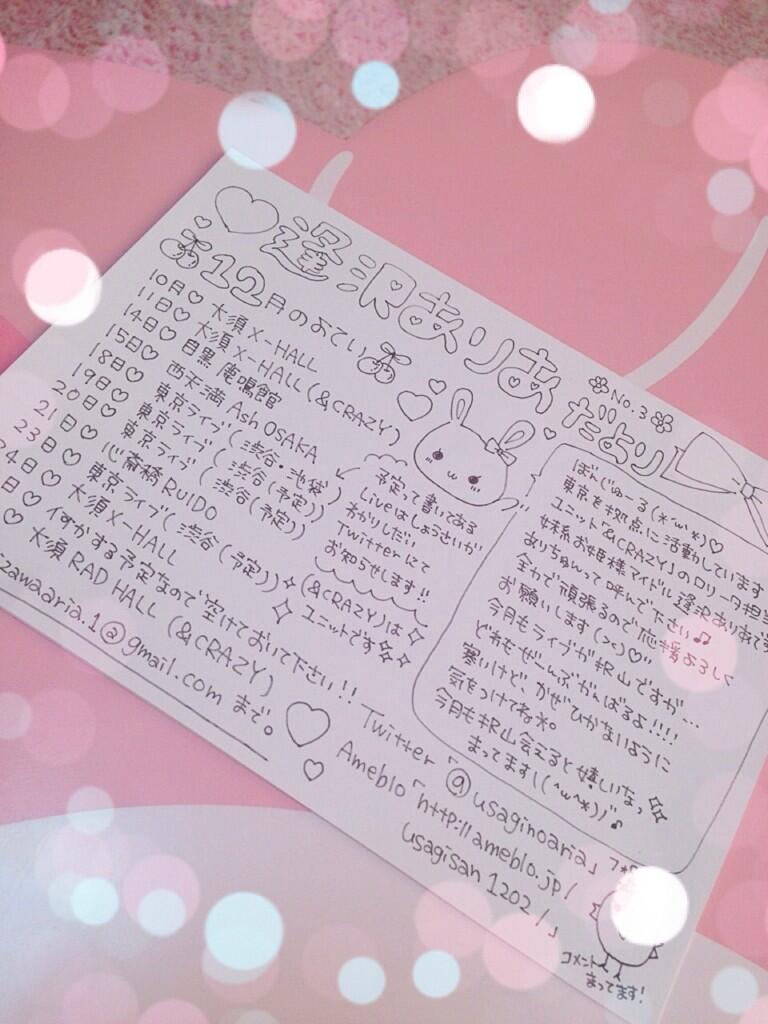 逢沢ありあだより
No.3
12月のよてい
10日♡ 大須 X-HALL
11日♡ 大須 X-HALL (&CRAZY)
14日♡ 目黒 鹿鳴館
15日♡ 西天満 Ash OSAKA
18日♡ 東京ライブ (渋谷・池袋)
19日♡ 東京ライブ (渋谷(予定))
20日♡ 東京ライブ (渋谷(予定))
21日♡ 心斎橋 RUIDO
23日♡ 東京ライブ (渋谷(予定))
24日♡ 大須 X-HALL
日♡ 何かする予定なので空けておいて下さい!!
♡ 大須 RAD HALL (&CRAZY)
zawaaria.1@gmail.com まで。
予定って書いてある
Liveはしょうさいが
わかりしだい
Twitterにて
お知らせします!!
(&CRAZY)は
ユニットです
ぼんじゅーる(*'w'*)♡
東京を拠点に活動しています
ユニット「&CRAZY」のロリータ担当
妹系お姫様アイドル逢沢ありあです
ありちゅんって呼んで下さい♫
全力で頑張るので応援よろしく
お願いします(><)♡"
今月もライブが沢山ですが…
どれもぜーんぶがんばるよ!!!!
寒いけど、かぜひかないように
気をつけてね*。
今月も沢山会えると嬉しいなっ
まってます\((^w^*))/"♪
Twitter「@usaginoaria」
Ameblo「http://ameblo.jp/
usagisan1202/」
コメント
まってます!